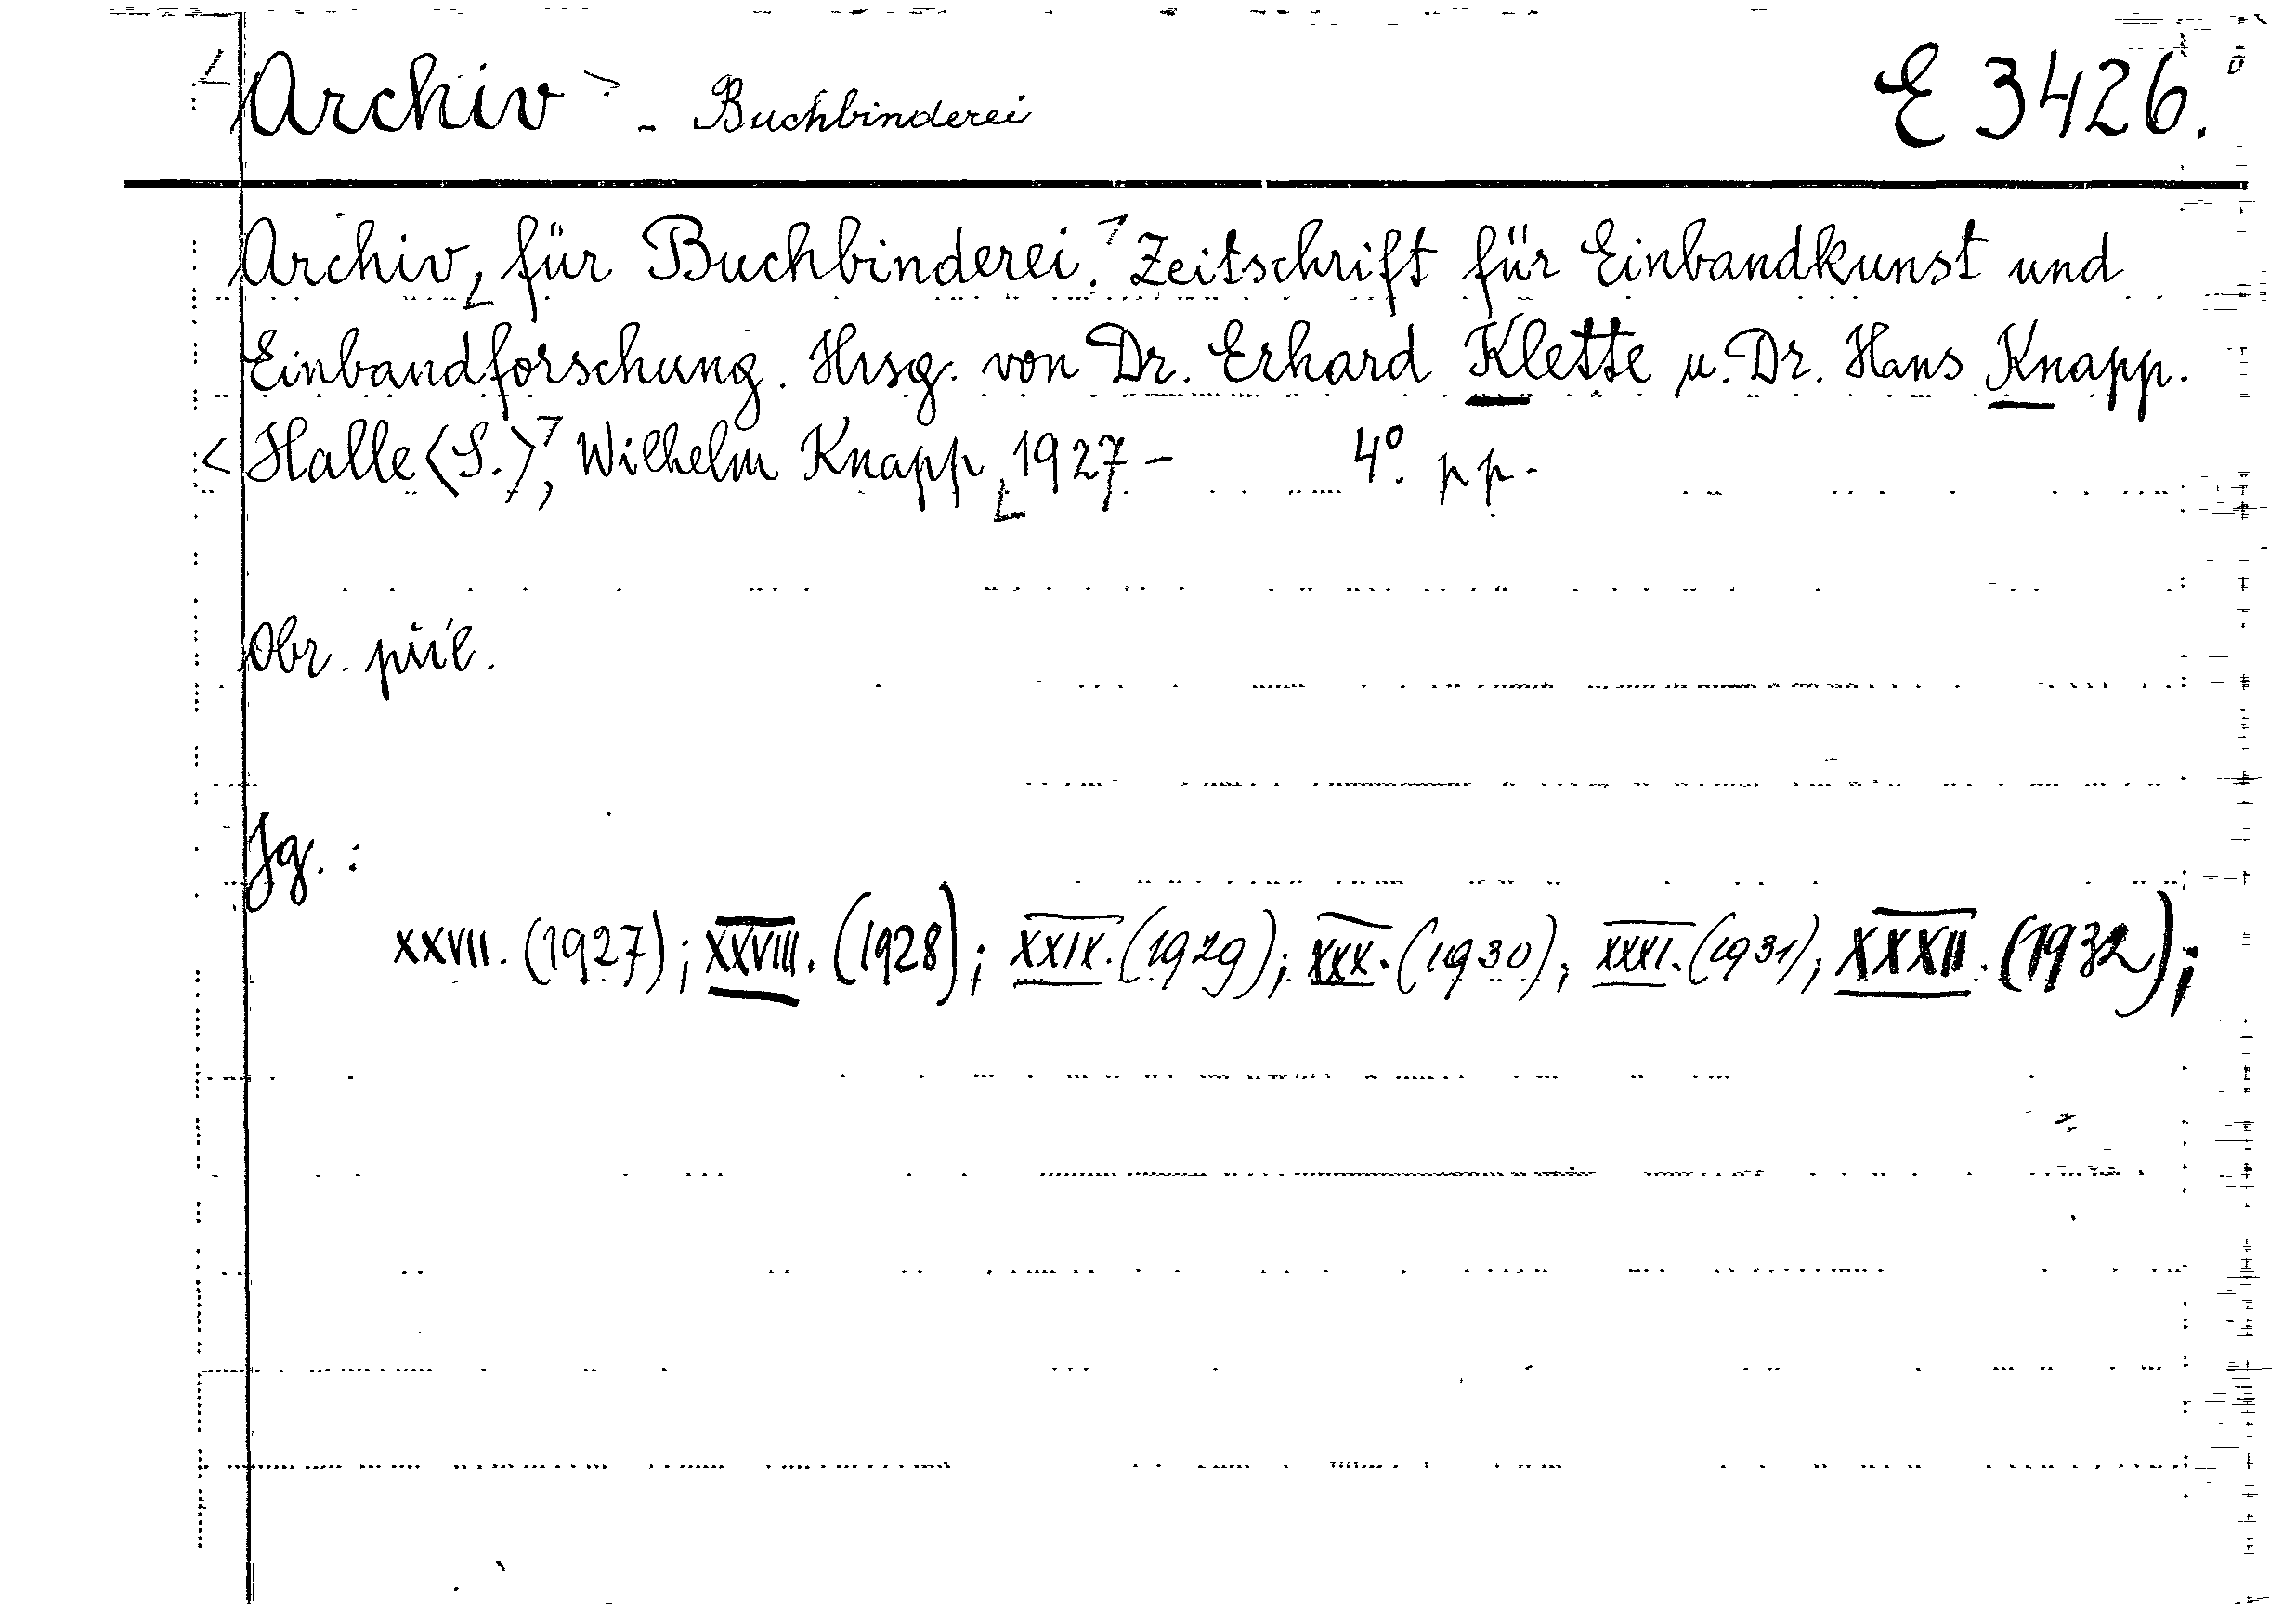 Archiv - Buchbinderei E 3426.
Archiv für Buchbinderei. Zeitschrift für Einbandkunst und
Einbandforschung. Hrsg. von Dr. Erhard Klette u. Dr. Hans Knapp.
Halle (S.), Wilhelm Knapp 1927- 4°. pp.
Obr. příl.
Jg. :
XXVII. (1927); XXVIII. (1928); XXIX. (1929); XXX. (1930); XXXI. (1931); XXXII. (1932);